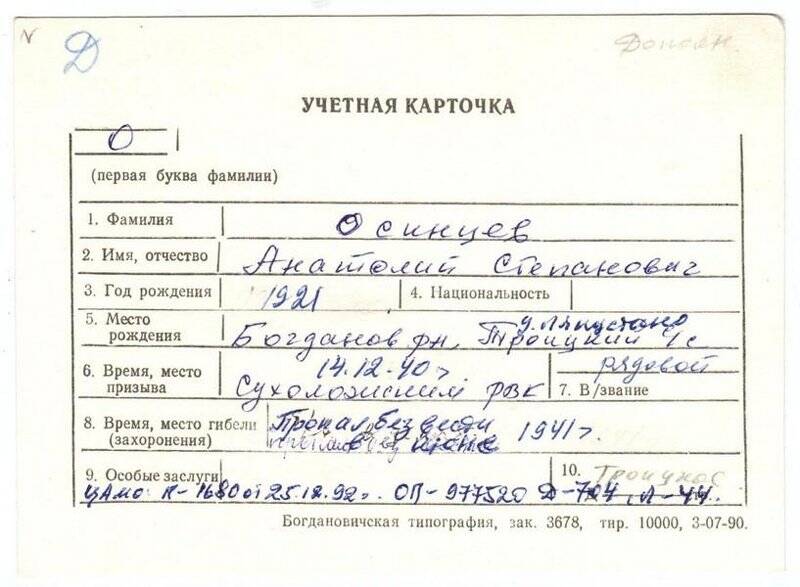 Д
Дополн.
УЧЕТНАЯ КАРТОЧКА
О
(первая буква фамилии)
1. Фамилия Осинцев
2. Имя, отчество Анатолий Степанович
3. Год рождения 1921 4. Национальность
5. Место рождения Богданов рн, Троицкий с/с
6. Время, место призыва 14.12.40г Сухоложским РВК
рядовой
7. В/звание
8. Время, место гибели (захоронения) Пропал без вести в июне 1941г.
9. Особые заслуги
10. Троицкое
ЦАМО. П-1680 от 25.12.92г. ОП-977520 Д-704, Л-44.
Богдановичская типография, зак. 3678, тир. 10000, 3-07-90.